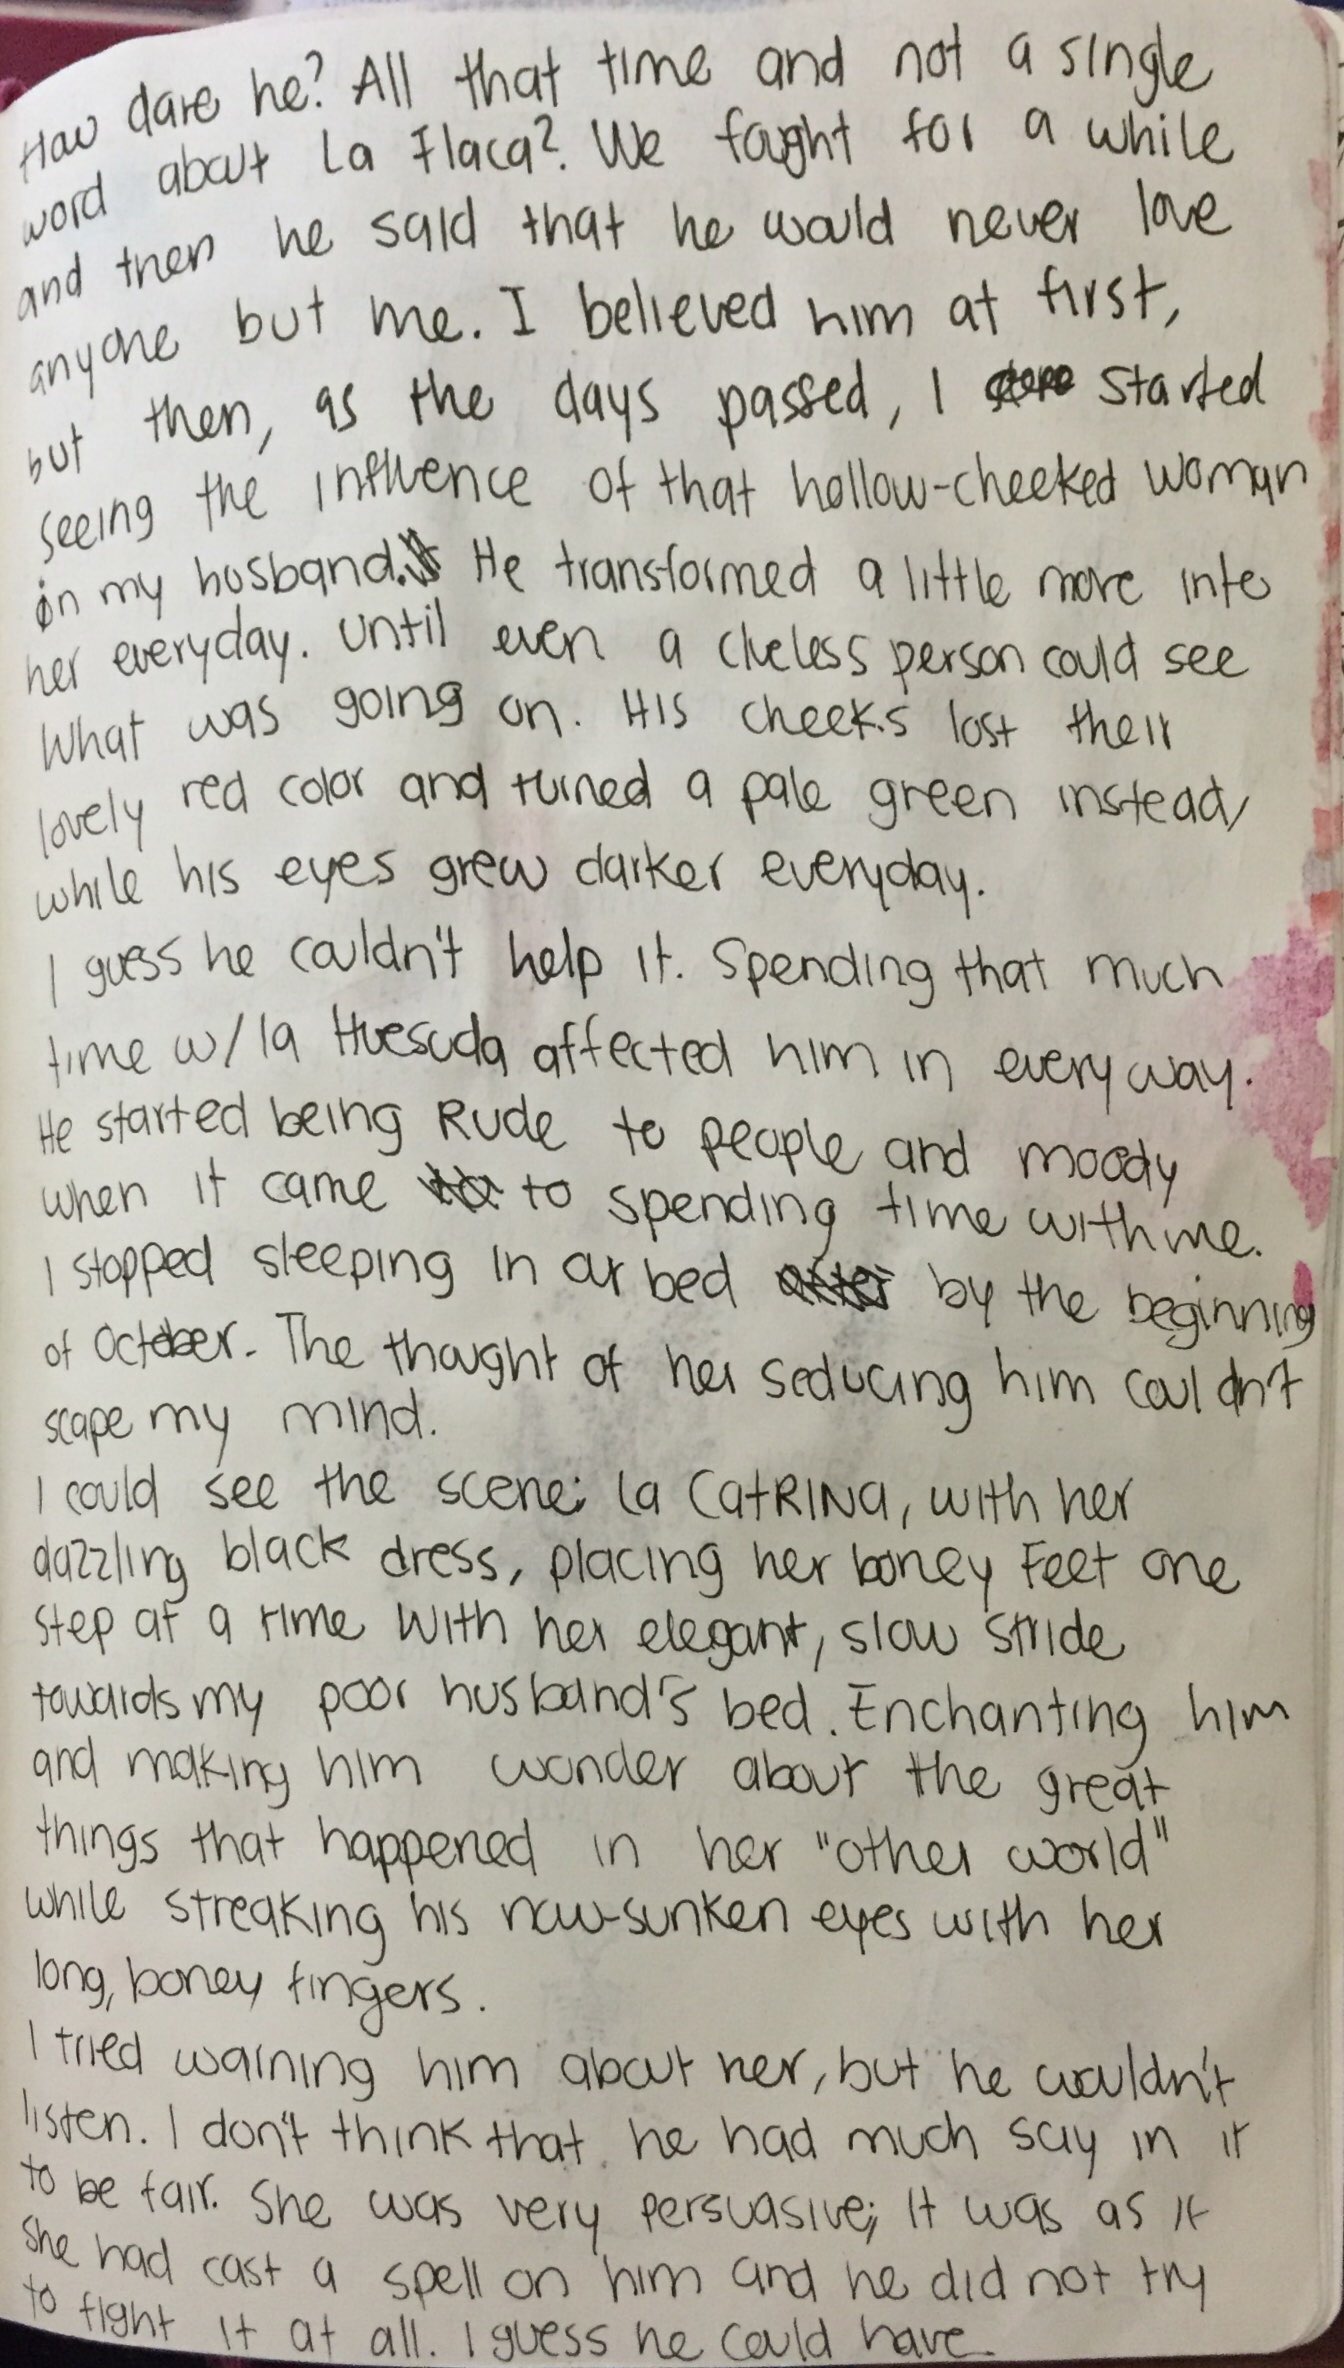 How dare he? All that time and not a single
word about La Flaca?. We fought for a while
and then he said that he would never love
anyone but me. I believed him at first,
but then, as the days passed, I started
seeing the influence of that hollow-cheeked woman
in my husband. He transformed a little more into
her everyday. Until even a clueless person could see
what was going on. His cheeks lost their
lovely red color and turned a pale green instead,
while his eyes grew darker everyday.
I guess he couldn't help it. Spending that much
time w/ la Huesuda affected him in every way.
He started being Rude to people and moody
when it came to spending time with me.
I stopped sleeping in our bed by the beginning
of October. The thought of her seducing him couldn't
scape my mind.
I could see the scene; La CatRINa, with her
dazzling black dress, placing her boney feet one
step at a time with her elegant, slow stride
towards my poor husband's bed. Enchanting him
and making him wonder about the great
things that happened in her "other world"
while streaking his now-sunken eyes with her
long, boney fingers.
I tried warning him about her, but he wouldn't
listen. I don't think that he had much say in it
to be fair. She was very persuasive; it was as if
she had cast a spell on him and he did not try
to fight it at all. I guess he could have.